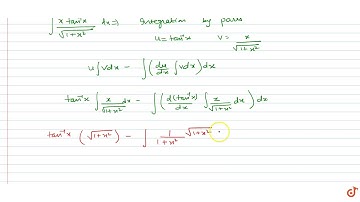 ∫ x tan⁻¹x / √(1+x²) dx ⇒ Integration by parts
u = tan⁻¹x v = x / √(1+x²)
u∫vdx − ∫(du/dx ∫vdx)dx
tan⁻¹x ∫ x/√(1+x²) dx − ∫(d(tan⁻¹x)/dx ∫ x/√(1+x²) dx) dx
tan⁻¹x (√(1+x²)) − ∫ 1/(1+x²) √(1+x²)